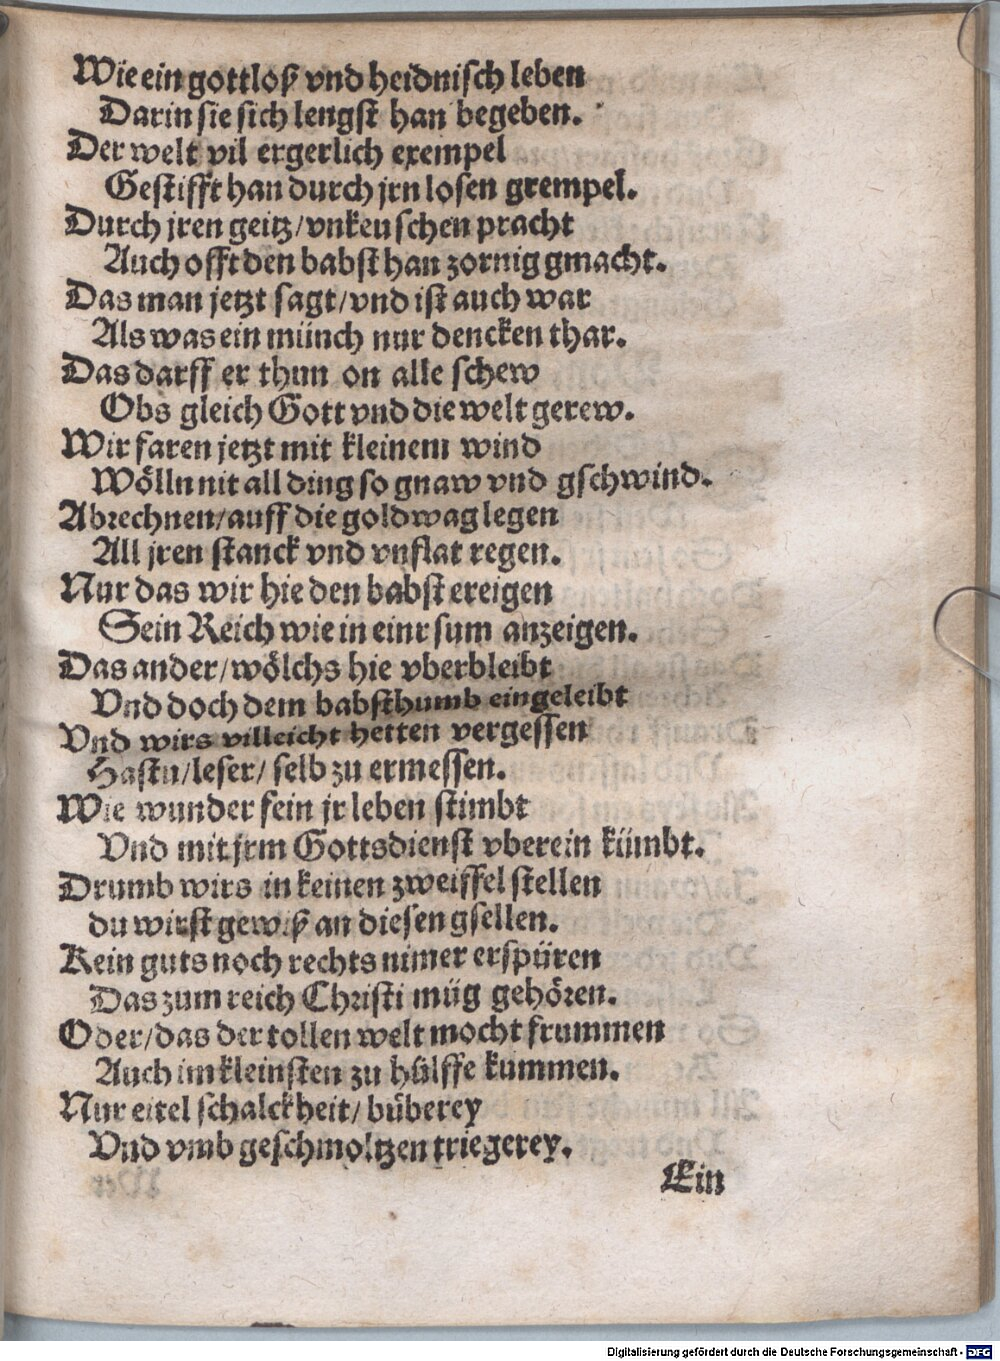 Wie ein gottloß vnd heidnisch leben
Darin sie sich lengst han begeben.
Der welt vil ergerlich exempel
Gestifft han durch jrn losen grempel.
Durch jren geitz/vnkeuschen pracht
Auch offt den babst han zornig gmacht.
Das man jetzt sagt/vnd ist auch war
Als was ein münch nur dencken thar.
Das darff er thun on alle schew
Obs gleich Gott vnd die welt gerew.
Wir faren jetzt mit kleinem wind
Wölln nit all ding so gnaw vnd gschwind.
Abrechnen/auff die goldwag legen
All jren stanck vnd vnflat regen.
Nur das wir hie den babst ereigen
Sein Reich wie in einr sum anzeigen.
Das ander/wölchs hie vberbleibt
Vnd doch dem babsthumb eingeleibt
Vnd wirs villeicht hetten vergessen
Hastu/leser/selb zu ermessen.
Wie wunder fein jr leben stimbt
Vnd mit jrm Gottsdienst vberein kümbt.
Drumb wirs in keinen zweiffel stellen
du wirst gewiß an diesen gsellen.
Kein guts noch rechts nimer erspüren
Das zum reich Christi müg gehören.
Oder/das der tollen welt mocht frummen
Auch im kleinsten zu hülffe kummen.
Nur eitel schalckheit/büberey
Vnd vmb geschmoltzen triegerey.
Ein
Digitalisierung gefördert durch die Deutsche Forschungsgemeinschaft - DFG